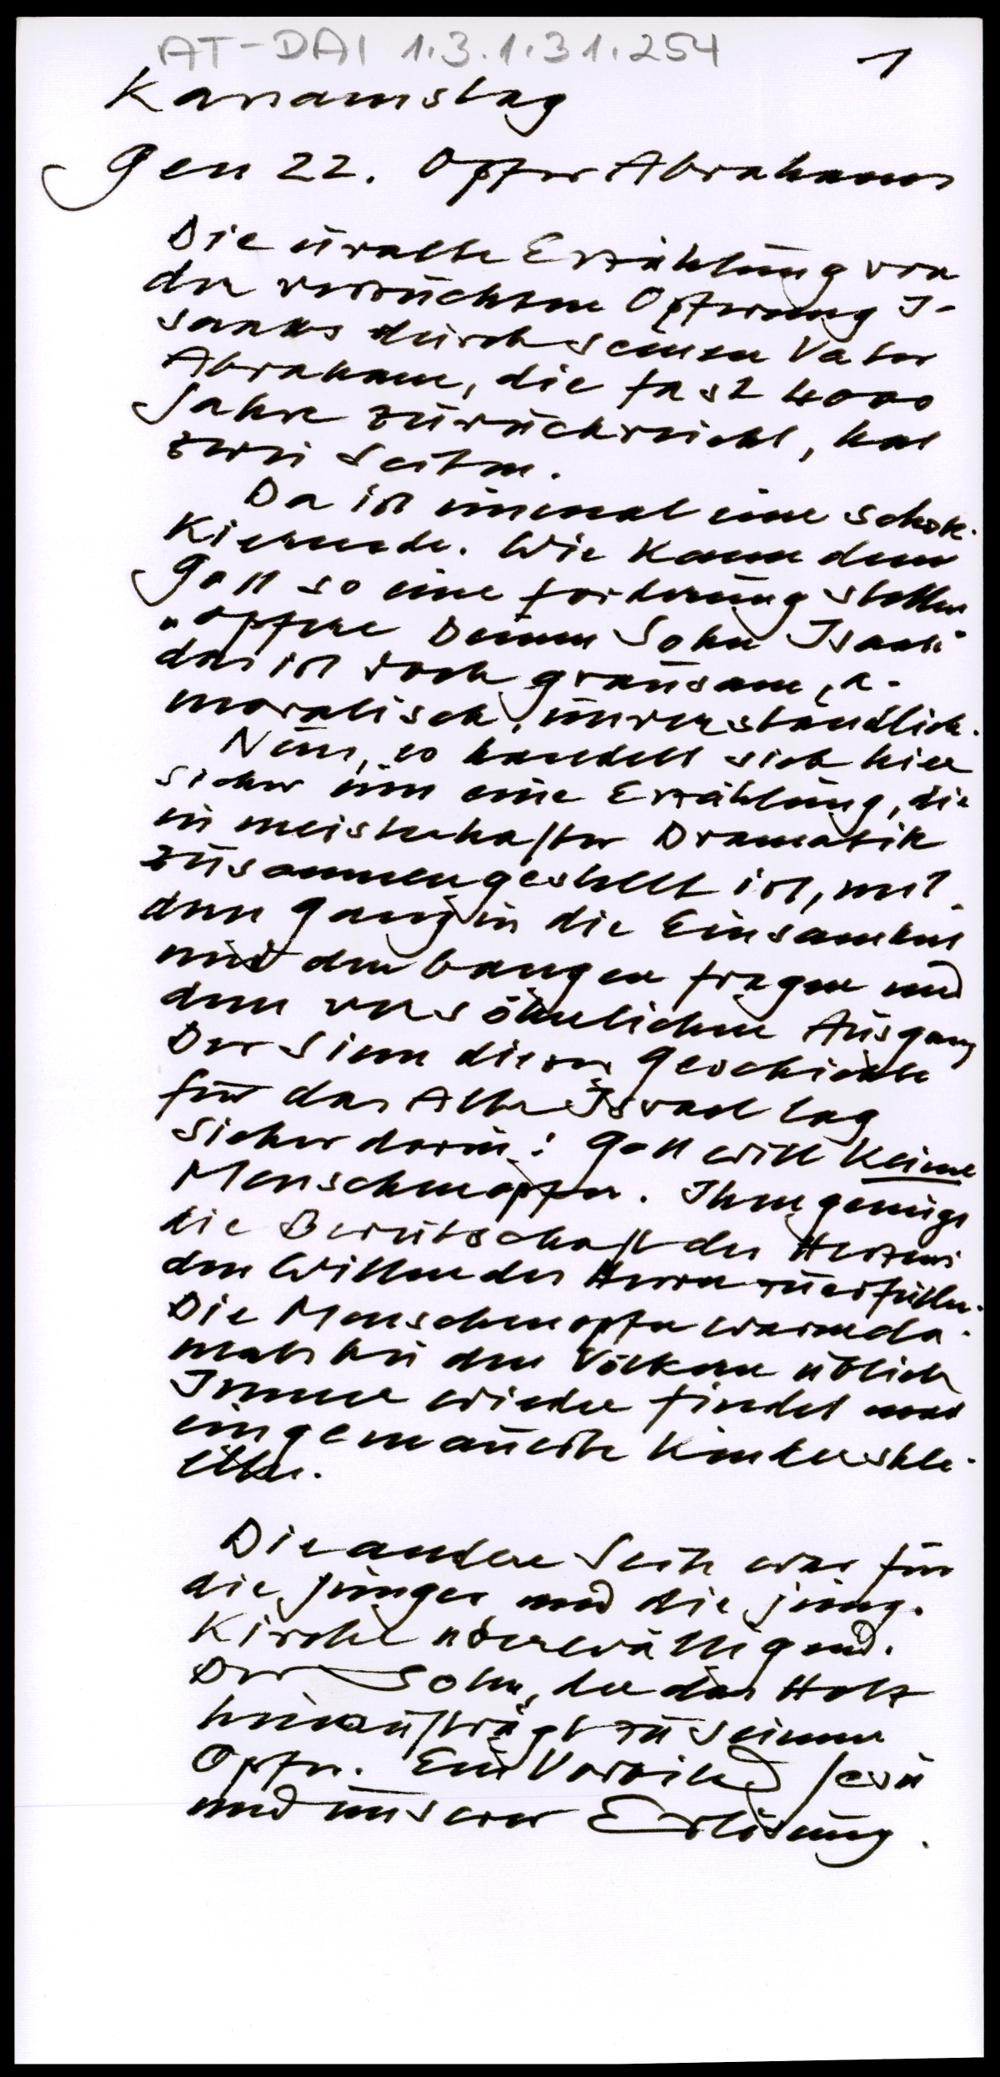 AT-DAI 1.3.1.31.254
1
Karsamstag
Gen 22. Opfer Abrahams
Die uralte Erzählung von
der versuchten Opferung I-
saaks durch seinen Vater
Abraham, die fast 4000
Jahre zurückreicht, hat
zwei Seiten.
Da ist einmal eine schok-
kierende. Wie kann denn
Gott so eine Forderung stellen
"opfere Deinen Sohn Isaak"
das ist doch grausam, a-
moralisch, unverständlich.
Nun, es handelt sich hier
sicher um eine Erzählung, die
in meisterhafter Dramatik
zusammengestellt ist, mit
dem Gang in die Einsamkeit
mit den bangen Fragen und
dem versöhnlichen Ausgang
Der Sinn dieser Geschichte
für das Alte Israel lag
sicher darin: Gott will keine
Menschenopfer. Ihm genügt
die Bereitschaft des Herzens
den Willen des Herrn zu erfüllen.
Die Menschenopfer waren da-
mals bei den Völkern üblich
Immer wieder findet man
eingemauerte Kinderske-
lette.
Die andere Seite war für
die Jünger und die junge
Kirche überwältigend.
Der Sohn, der das Holz
hinaufträgt zu seinem
Opfer. Ein Vorbild Jesu
und unserer Erlösung.